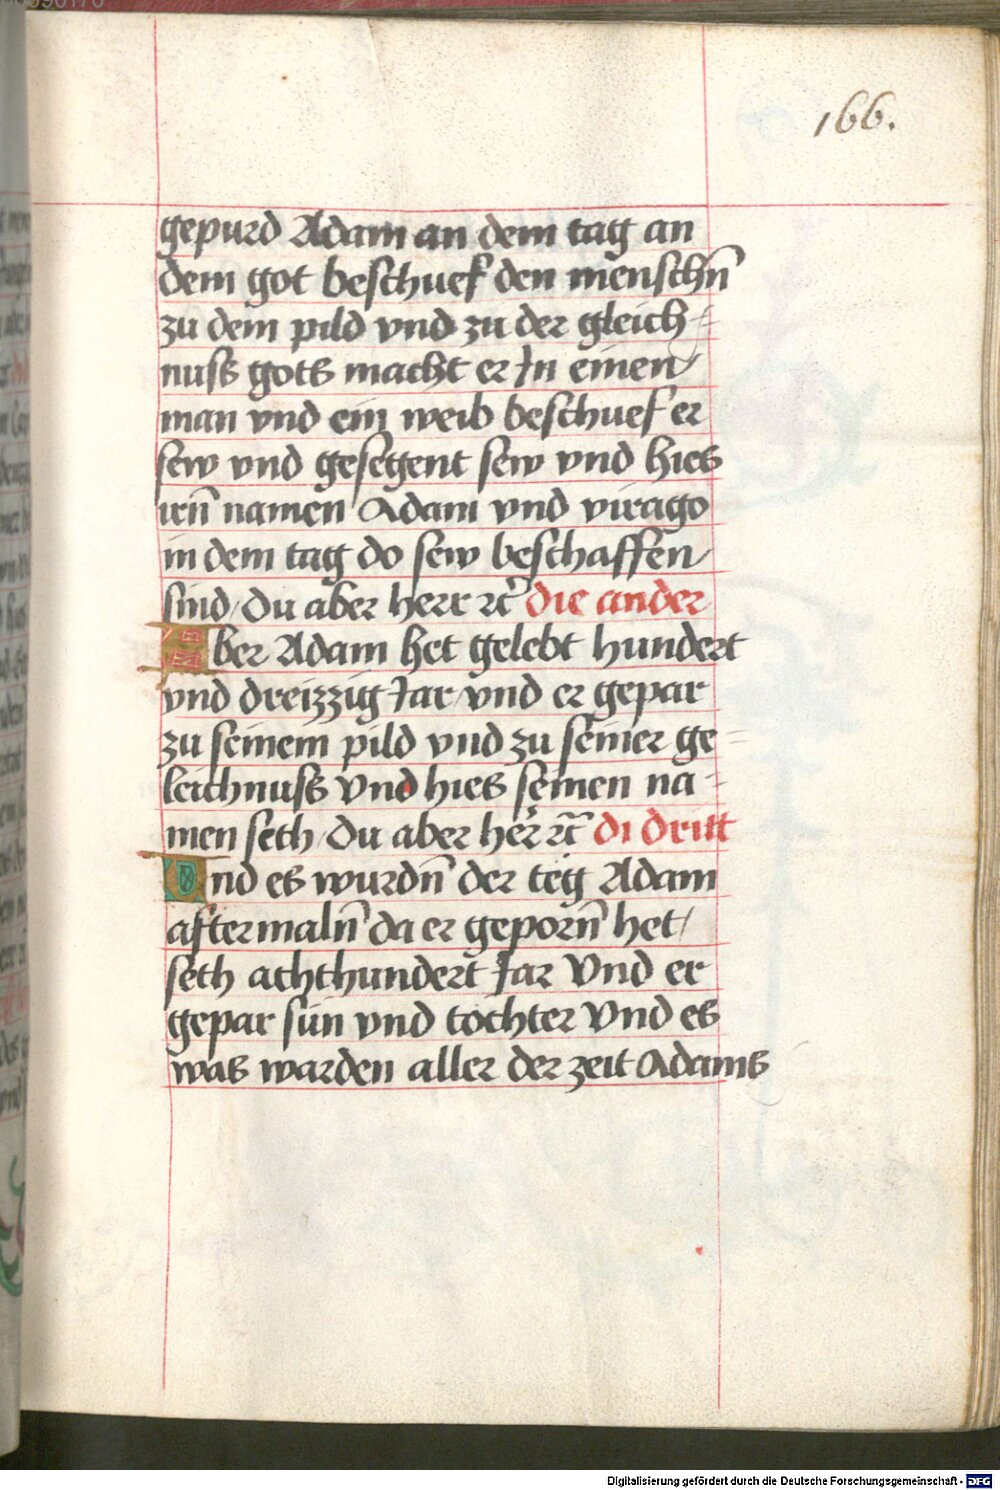 166.
gepurd Adam an dem tag an
dem got beschuef den menschn̄
zu dem pild vnd zu der gleich⸗
nuss gots macht er In einen
man vnd ein weib beschuef er
sew vnd gesegent sew vnd hies
irn̄ namen Adam vnd virago
in dem tag do sew beschaffen
sind / du aber herr ꝛc̄ die ander
Aber Adam het gelebt hundert
vnd dreizzig Jar / vnd er gepar
zu seinem pild vnd zu seiner ge⸗
leichnuss Vnd hies seinen na⸗
men seth / du aber her̄r ꝛc̄ di dritt
Vnd es wurdn̄ der teg Adam
aftermaln̄ da er geporn̄ het /
seth achthundert Jar Vnd er
gepar sün vnd töchter Vnd es
was warden aller der zeit Adams
Digitalisierung gefördert durch die Deutsche Forschungsgemeinschaft - DFG